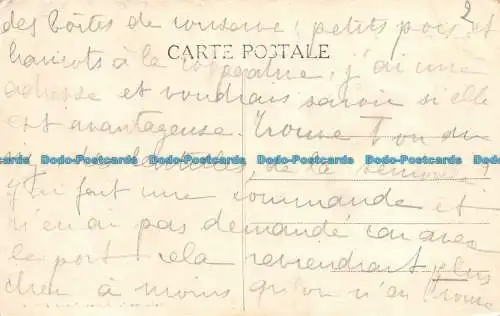 2
des boîtes de conserve : petits pois et
haricots à la
CARTE POSTALE
j'ai une
adresse et voudrais savoir si elle
est avantageuse. Trouve T'on du
riz, des lentilles, de la semoule ?
J'ai fait une commande et
n'en ai pas demandé car avec
le port cela reviendrait plus
cher à moins qu'on n'en trouve
Dodo-Postcards Dodo-Postcards Dodo-Postcards Dodo-Postcards Dodo-Postcards